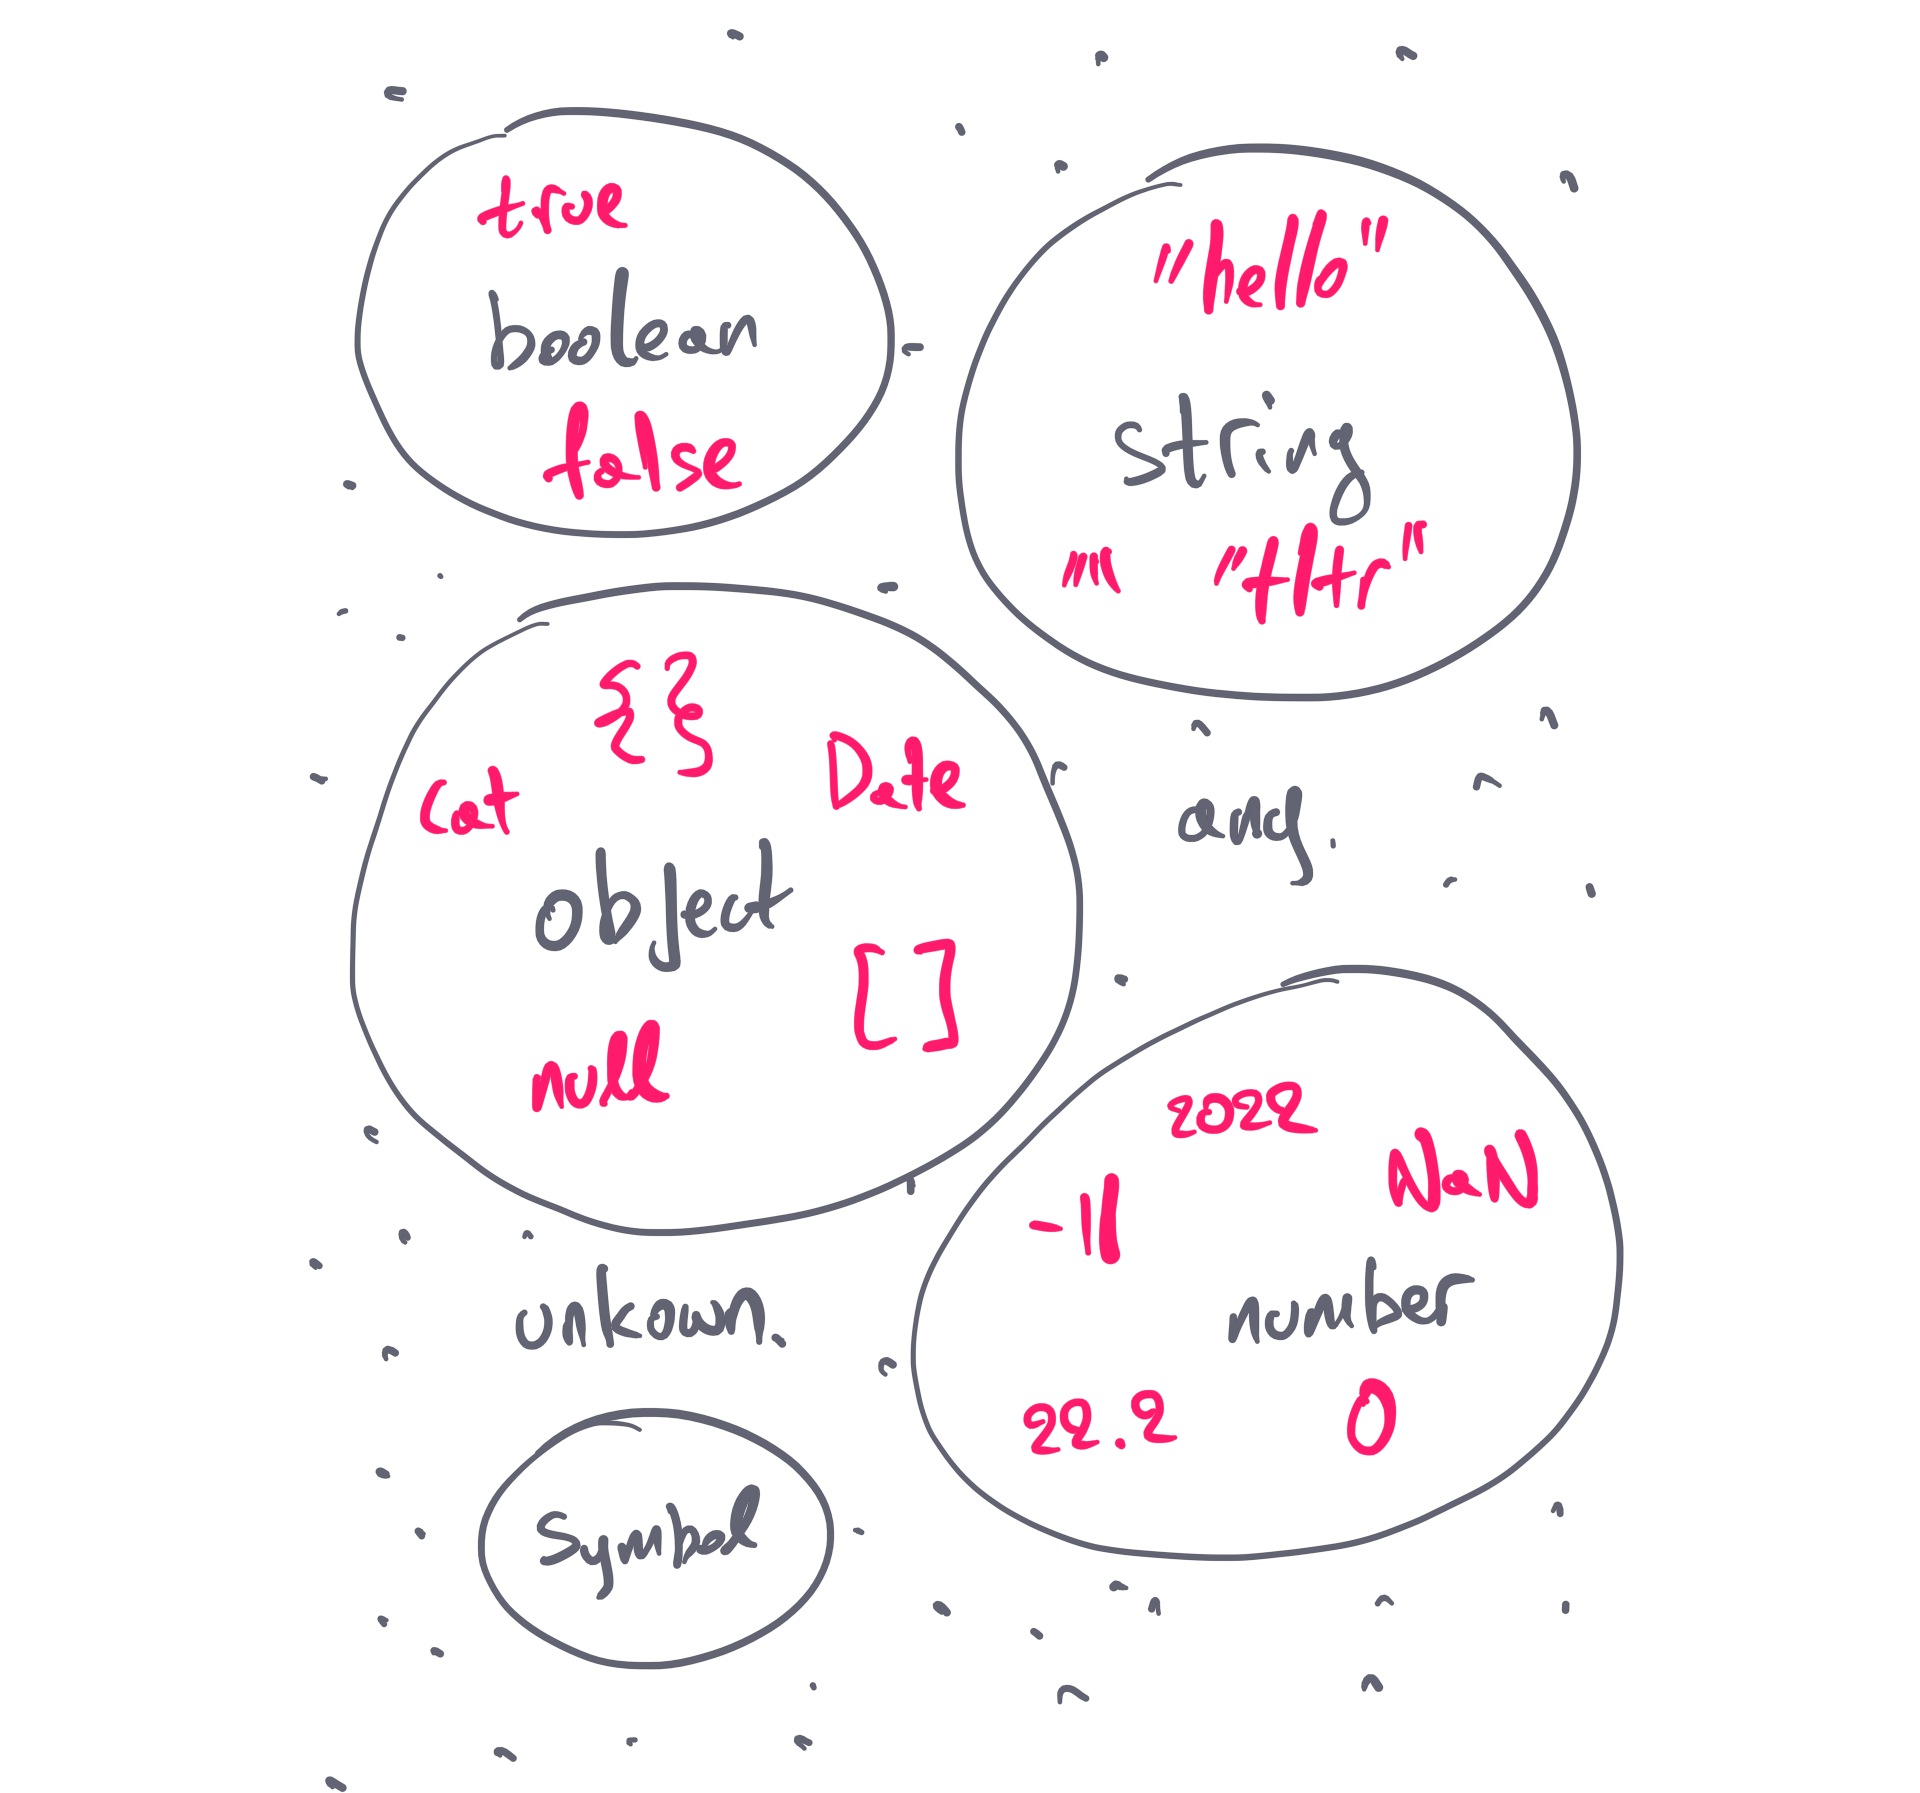 true
boolean
false
"hello"
string
"" "tltr"
{ }
Cat
Date
object
[ ]
null
any.
2022
NaN
-11
number
22.2
0
unkown.
Symbol